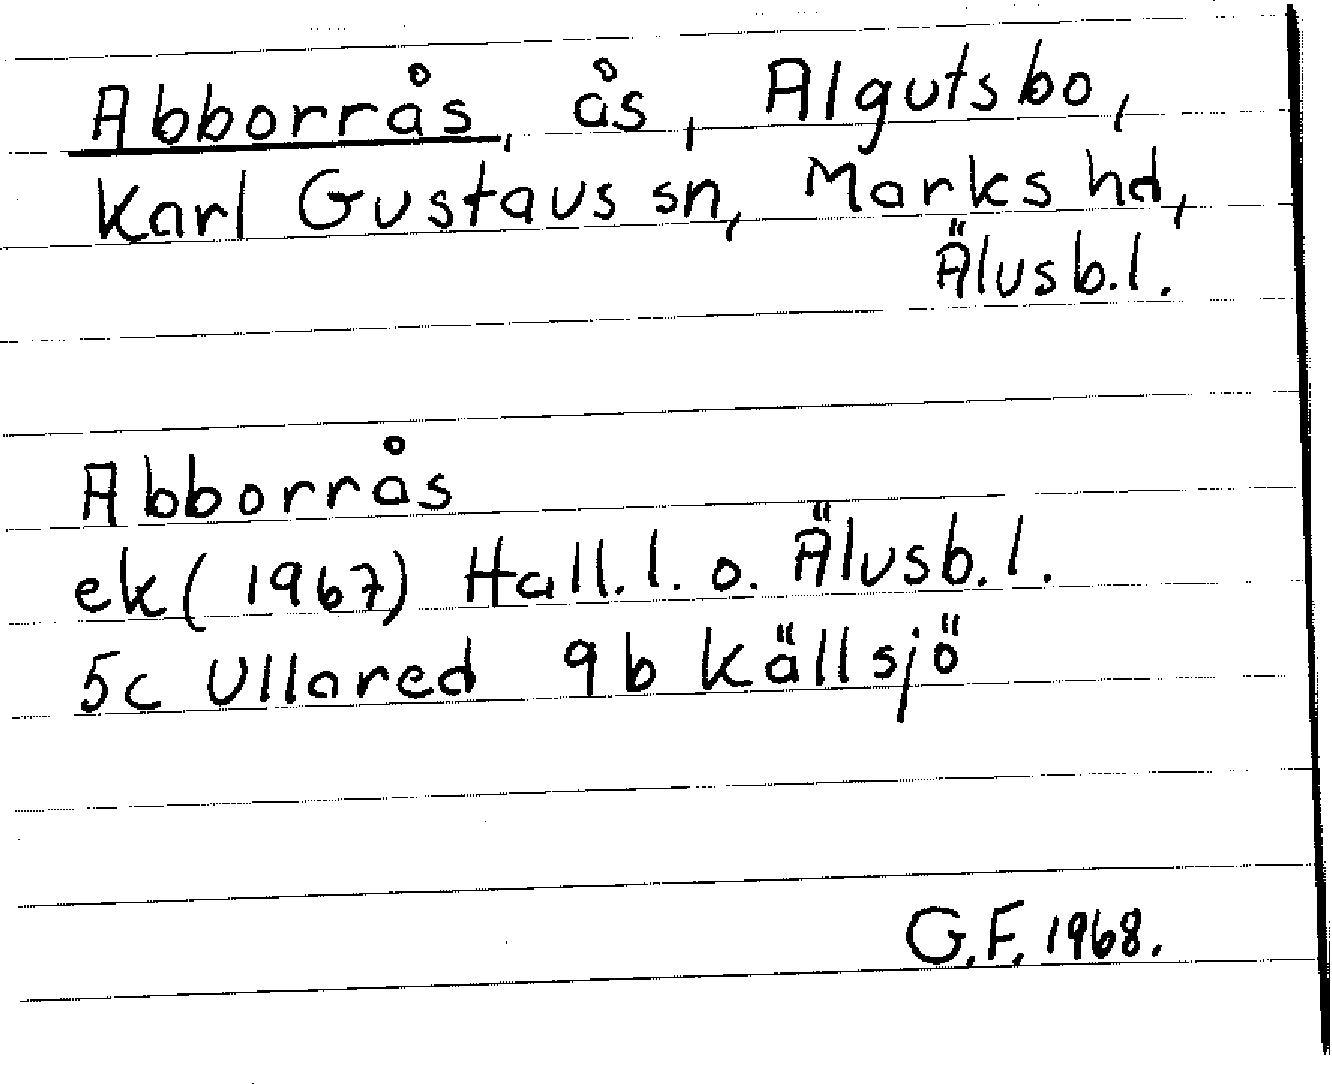 Abborrås, ås, Algutsbo,
Karl Gustavs sn, Marks hd,
Älvsb.l.
Abborrås
ek (1967) Hall.l. o. Älvsb.l.
5c Ullared 9b Källsjö
G.F. 1968.